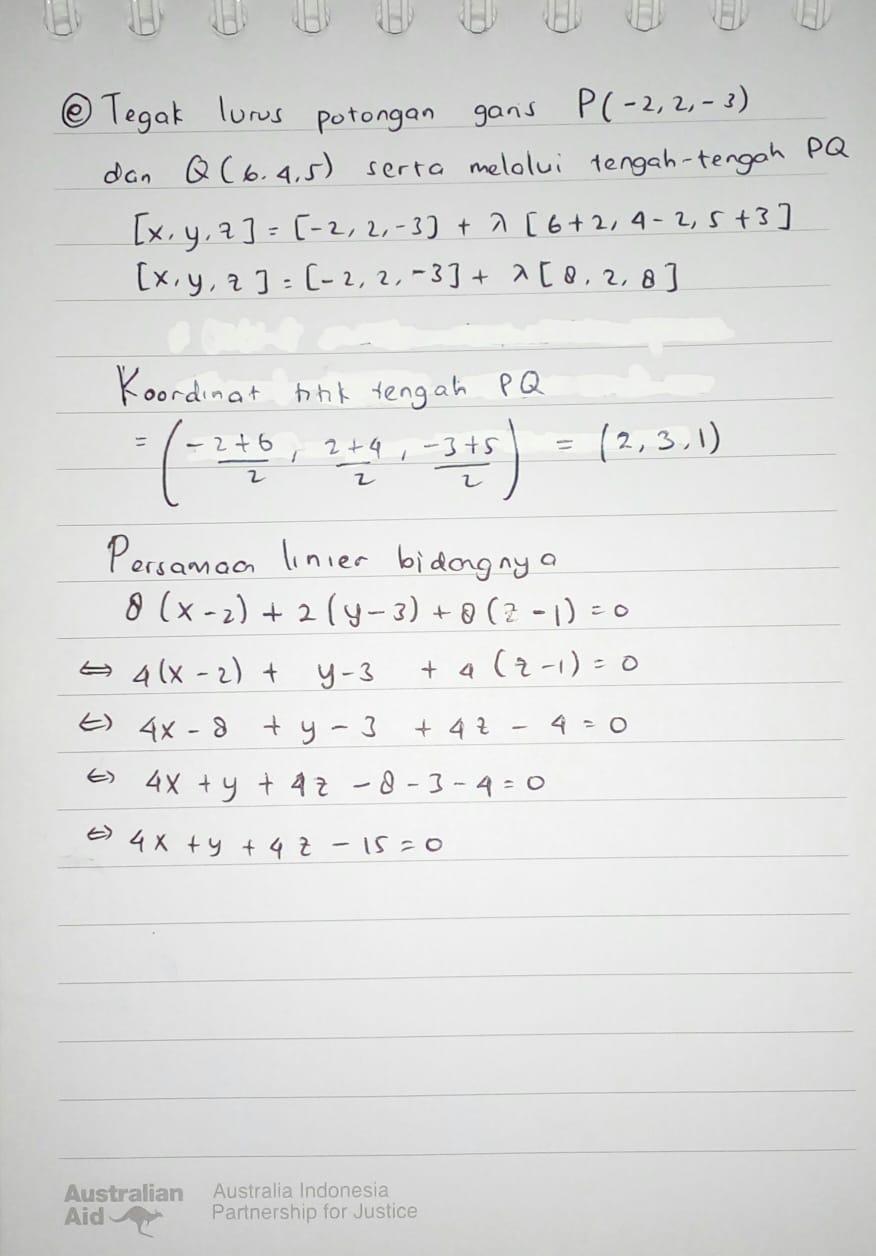 ⓔ Tegak lurus potongan garis P(-2, 2, -3)
dan Q(6, 4, 5) serta melalui tengah-tengah PQ
[x, y, z] = [-2, 2, -3] + λ [6+2, 4-2, 5+3]
[x, y, z] = [-2, 2, -3] + λ [8, 2, 8]
Koordinat titik tengah PQ
= (-2+6/2, 2+4/2, -3+5/2) = (2, 3, 1)
Persamaan linier bidangnya
8(x-2) + 2(y-3) + 8(z-1) = 0
⇔ 4(x-2) + y-3 + 4(z-1) = 0
⇔ 4x - 8 + y - 3 + 4z - 4 = 0
⇔ 4x + y + 4z - 8 - 3 - 4 = 0
⇔ 4x + y + 4z - 15 = 0
Australian Aid
Australia Indonesia
Partnership for Justice